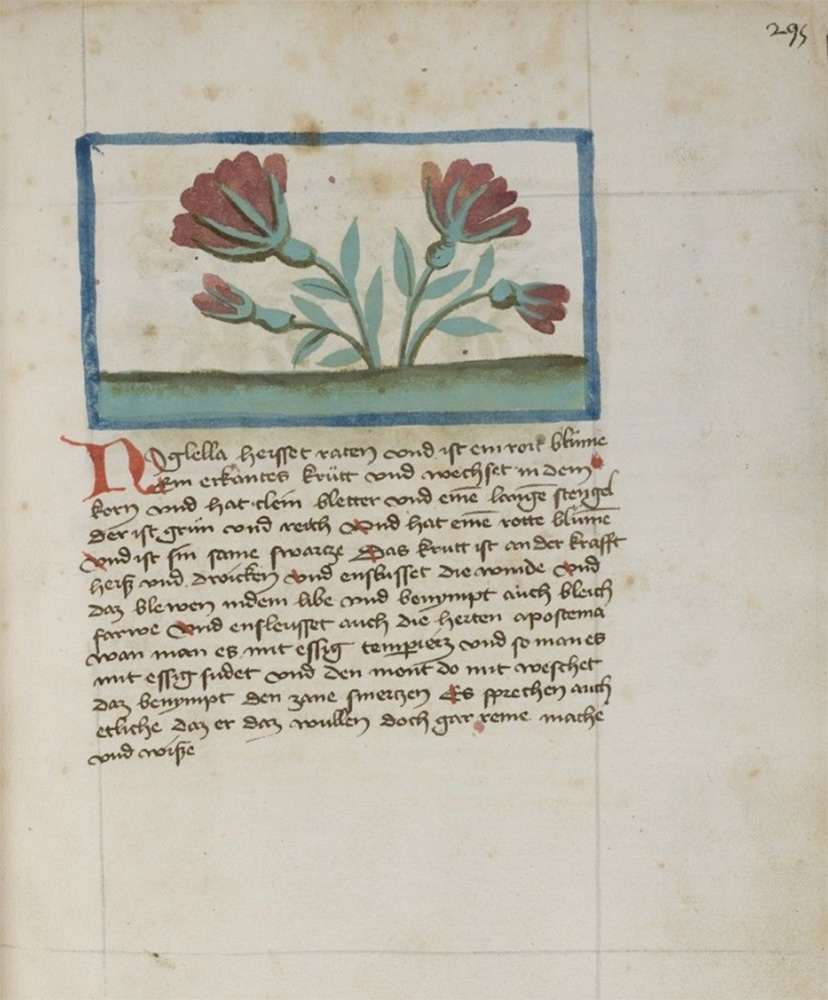 295
Niglella heisset raten vnd ist ein rott blůme
Ein erkantes krůtt vnd wechset in dem
korn vnd hat clein bletter vnd eine lange stengel
der ist grůn vnd reich Vnd hat einē rotte blůmē
Vnd ist sin same swartze Das krutt ist an der krafft
heiß vnd drůcken Vnd die winde Vnd
daz blewen indem libe vnd benympt auch bleich
farwe Vnd auch die herten apostema
wan man es mit essig tempierz vnd so man es
mit essig sudet vnd den mont do mit weschet
daz benympt den zane smertzen Es sprechen auch
etliche daz er daz wullen doch gar reine mache
vnd wiße